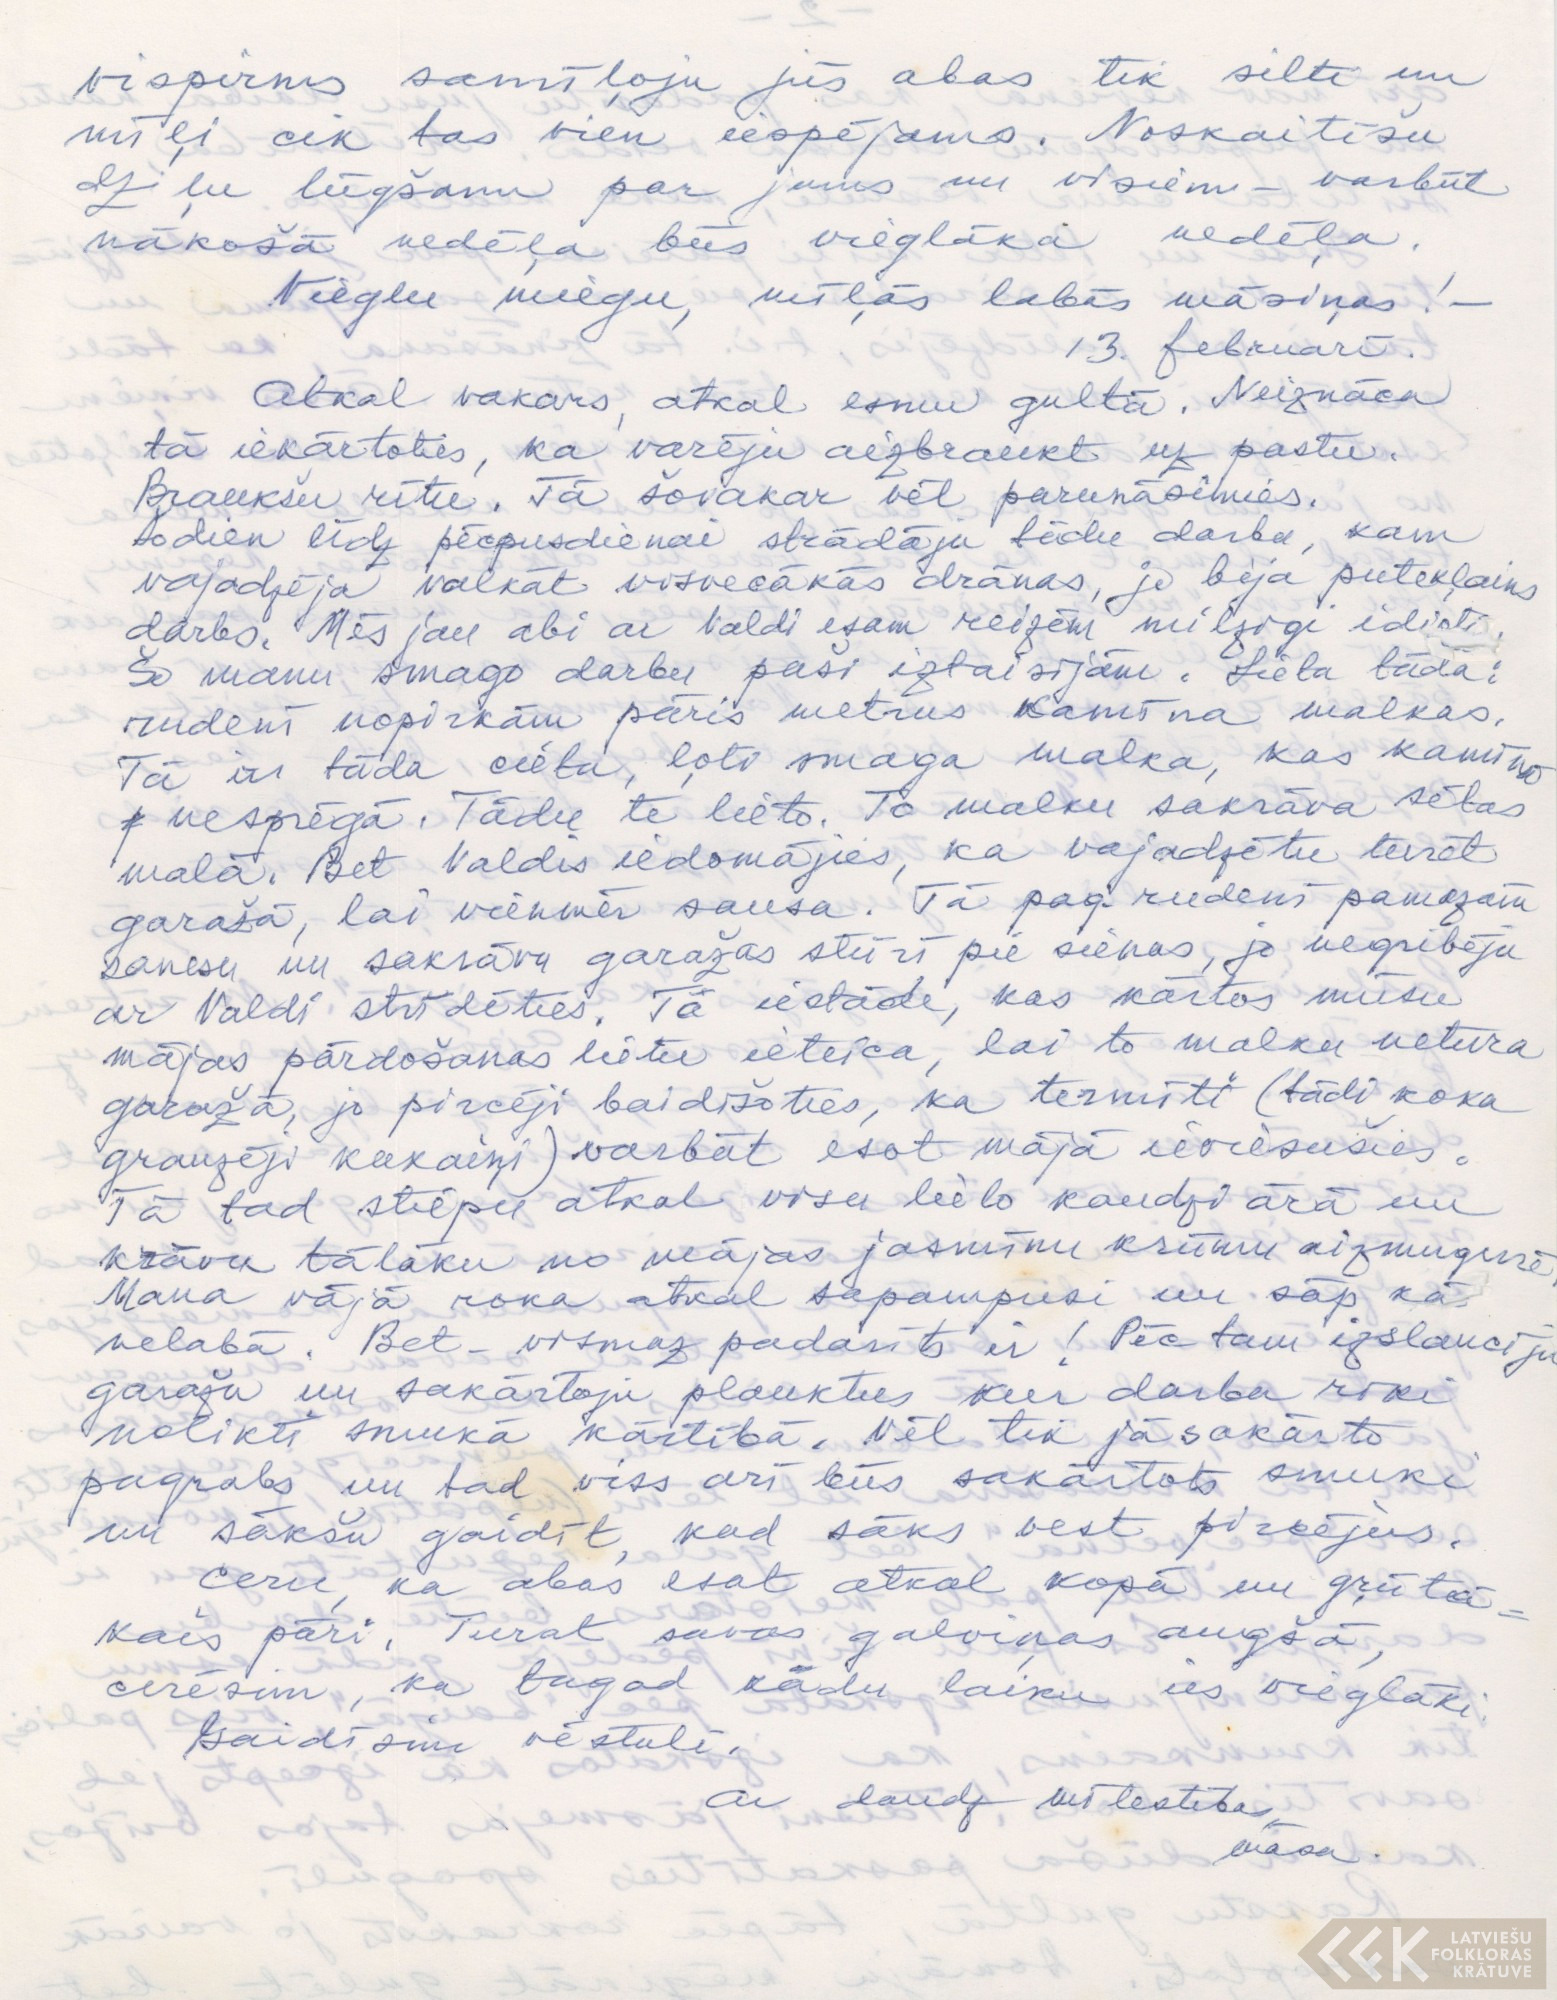 vispirms samīļoju jūs abas tik silti un
mīļi cik tas vien iespējams. Noskaitīšu
dziļu lūgšanu par jums un visiem – varbūt
nākošā nedēļa būs vieglāka nedēļa.
Vieglu miegu, mīļās labās māsiņas! –
13. februārī.
Atkal vakars, atkal esmu gultā. Neiznāca
tā iekārtoties, ka varēju aizbraukt uz pastu.
Braukšu rītu. Tā šovakar vēl parunāsimies.
Šodien līdz pēcpusdienai strādāju tādu darbu, kam
vajadzēja valkāt visvecākās drānas, jo bija putekļains
darbs. Mēs jau abi ar Valdi esam reizēm milzīgi idioti.
Šo manu smago darbu paši iztaisījām. Lieta tāda:
rudenī nopirkām pāris metrus kamīna malkas.
Tā ir tāda cieta, ļoti smaga malka, kas kamīnā
nesprēgā. Tādu te lieto. To malku sakrāva sētas
malā. Bet Valdis iedomājies, ka vajadzētu turēt
garažā, lai vienmēr sausa. Tā pag. rudenī pamazām
sanesu un sakrāvu garažas stūrī pie sienas, jo negribēju
ar Valdi strīdēties. Tā iestāde, kas kārtos mūsu
mājas pārdošanas lietu ieteica, lai to malku netura
garažā, jo pircēji baidīšoties, ka termiti (tādi koka
grauzēji kukaiņi) varbūt esot mājā ieviesušies.
Tā tad stiepu atkal visu lielo kaudzi ārā un
krāvu tālāku no mājas jasmīnu krūmu aizmugurē.
Mana vājā roka atkal sapampusi un sāp kā
nelabā. Bet – vismaz padarīts ir! Pēc tam izslaucīju
garažu un sakārtoju plauktus kur darba rīki
nolikti smukā kārtībā. Vēl tik jāsakārto
pagrabs un tad viss arī būs sakārtots smuki
un sākšu gaidīt, kad sāks vest pircējus.
Ceru, ka abas esat atkal kopā un grūtā-
kais pāri. Turat savas galviņas augšā,
cerēsim, ka tagad kādu laiku ies vieglāki.
Gaidīsim vēstuli.
Ar daudz mīlestības,
māsa.
LATVIEŠU
FOLKLORAS
KRĀTUVE